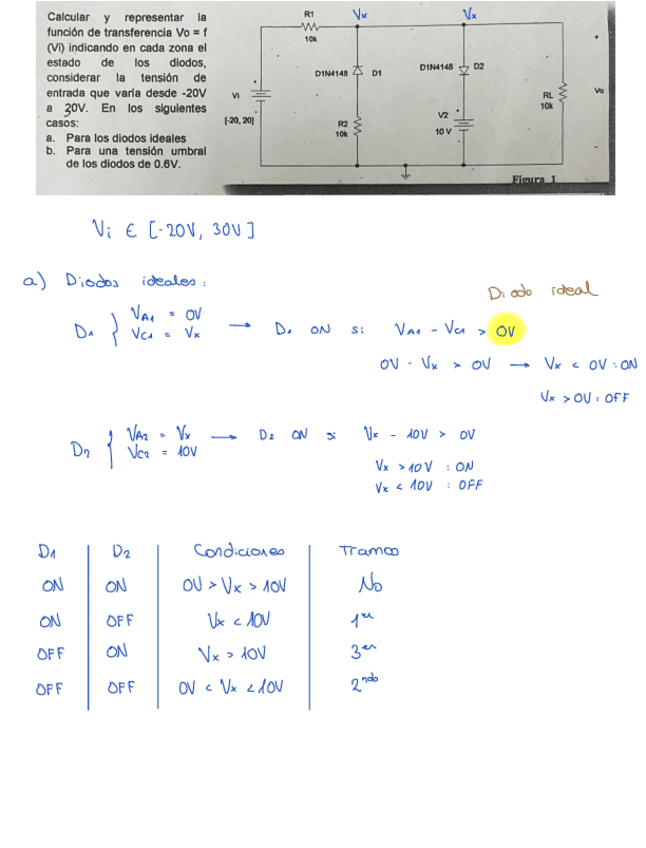 Calcular y representar la
función de transferencia Vo = f
(Vi) indicando en cada zona el
estado de los diodos,
considerar la tensión de
entrada que varía desde -20V
a 30V. En los siguientes
casos:
a. Para los diodos ideales
b. Para una tensión umbral
de los diodos de 0.6V.
R1
10k
Vx
Vx
D1N4148
D1
D1N4148
D2
Vi
[-20, 20]
R2
10k
V2
10 V
RL
10k
Vo
Figura 1
Vi ∈ [-20V, 30V]
a) Diodos ideales:
Diodo ideal
D1 { VA1 = 0V
VC1 = Vx
→ D1 ON si: VA1 - VC1 > 0V
0V - Vx > 0V → Vx < 0V : ON
Vx > 0V : OFF
D2 { VA2 = Vx
VC2 = 10V
→ D2 ON si Vx - 10V > 0V
Vx > 10V : ON
Vx < 10V : OFF
D1 D2 Condiciones Tramoo
ON ON 0V > Vx > 10V No
ON OFF Vx < 10V 1er
OFF ON Vx > 10V 3er
OFF OFF 0V < Vx < 10V 2ndo